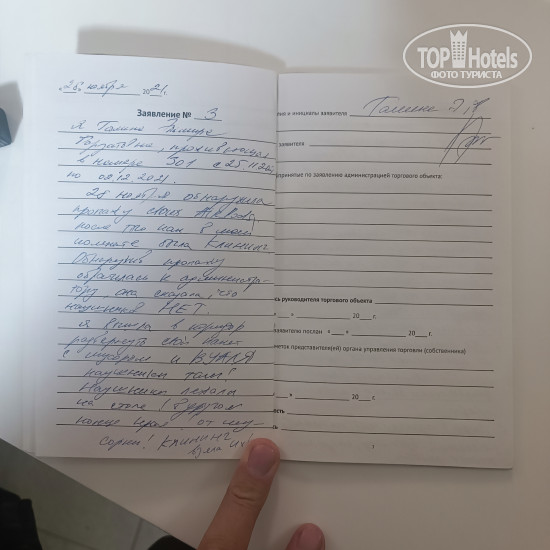 TOPHotels
ФОТО ТУРИСТА
„28" ноября 2021г.
Заявление № 3
Я Галина
проживающая
в номере 301 с 25.11.21
по 02.12.2021.
28 ноября обнаружила
пропажу своих AirPods,
после того как в моей
комнате была клининг.
Обнаружив пропажу
обратилась к администра-
тору, она сказала, что
наушников НЕТ.
Я вышла в коридор
развернуть свой пакет
с мусором и ВУАЛЯ
наушники там!
Наушники лежали
на столе! В другом
конце от му-
сорки! Клининг
взяла их!
ия и инициалы заявителя Галина
заявителя
принятые по заявлению администрацией торгового объекта:
сь руководителя торгового объекта
« » 20 г.
заявителю послан « » 20 г.
меток представителя(ей) органа управления торговли (собственника)
» 20 г.
ность
сь